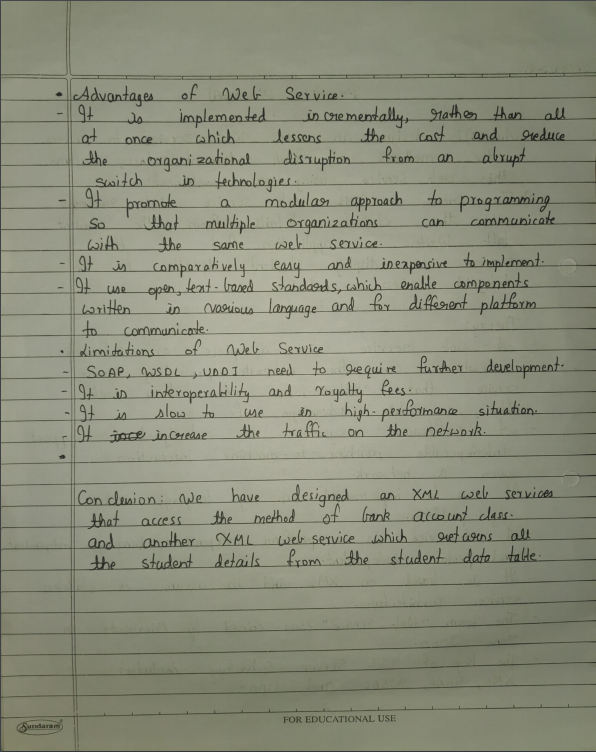 • Advantages of Web Service.
- It is implemented incrementally, rather than all
at once which lessens the cost and reduce
the organizational disruption from an abrupt
switch in technologies.
- It promote a modular approach to programming
so that multiple organizations can communicate
with the same web service.
- It is comparatively easy and inexpensive to implement.
- It use open, text-based standards, which enable components
written in various language and for different platform
to communicate.
• Limitations of Web Service
- SOAP, WSDL, UDDI need to require further development.
- It is interoperability and royalty fees.
- It is slow to use in high-performance situation.
- It increase the traffic on the network.
•
Conclusion: We have designed an XML web services
that access the method of bank account class.
and another XML web service which returns all
the student details from the student data table.
Sundaram
FOR EDUCATIONAL USE